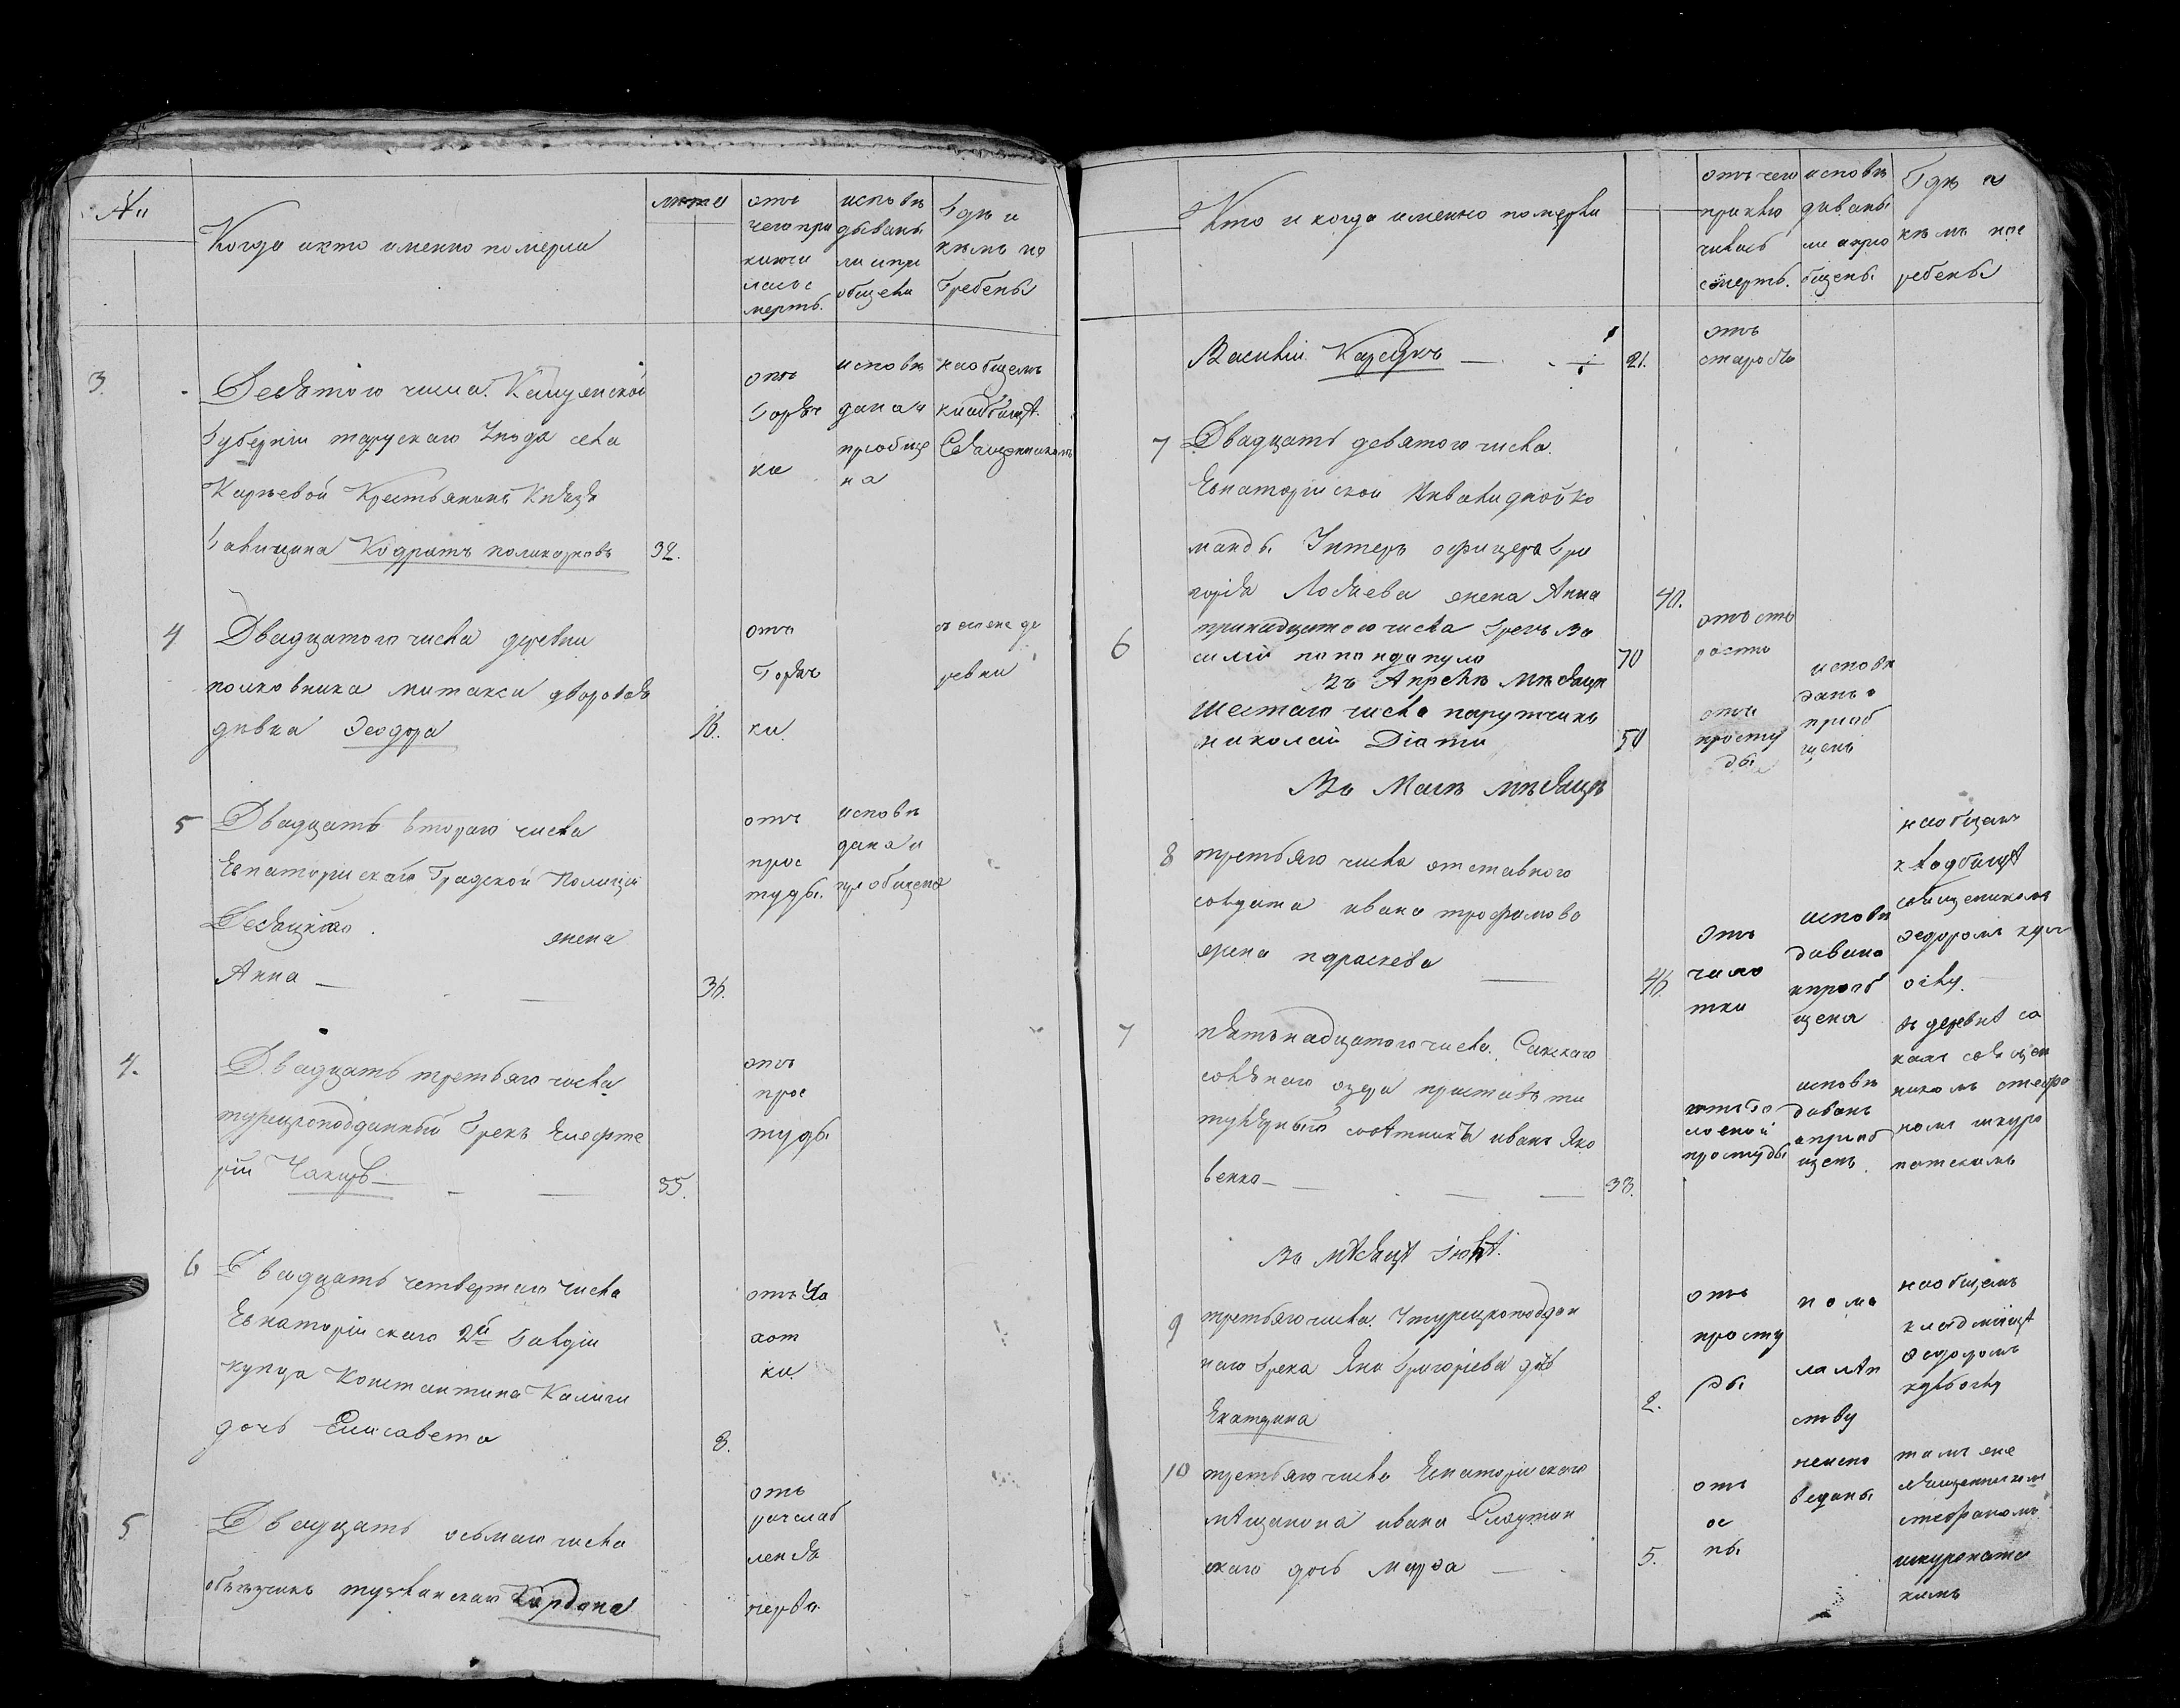 №
Когда икто именно померли
лета
отъ
чего при
ключи
лась с
мерть.
исповѣ
дываны
ли и при
общены
Гдѣ и
кѣмъ по
гребены
3.
Десятого числа. Калуженской
Губерніи тарускаго Уѣзда села
Карѣевой Крестьянинъ Князя
Галицина Кодратъ поликарповъ
32.
отъ
Горяч
ки
исповѣ
данаи
приобще
на
наобщемъ
кладбищѣ.
Священникомъ
4
Двадцатого числа деревни
полковника митакси дворовая
дѣвка Ѳеодора
18.
отъ
Горяч
ки
де
ревни
5
Двадцать втораго числа
Евпаторискаго Градской Полиціи
Десяцкаго женa
Анна
36.
отъ
прос
туды.
исповѣ
дана и
приобщена
4.
Двадцать третьяго числа
турецкоподданный Грекъ Елефте
рій
55.
отъ
прос
туды
6
Двадцать четвертаго числа
Евпаторійскаго 2й Гильдіи
купца Константина Калиги
дочь Елисавета
8.
отъ Ча
хот
ки
5
Двадцать осьмаго числа
объѣзчикъ Кордона
отъ
разслаб
ленія
нерва
Кто и когда именно померли
отъ чего
приклю
чилась
смерть.
исповѣ
дываны
ли и прио
бщены
Гдѣ и
кѣмъ пог
ребены
Василій
21.
отъ
старосты
7
Двадцать девятого числа.
Евпаторійской Инвалиднойко
манды Унтеръ офицера Гри
горія женa Анна
40.
6
тринадцатого числа Грекъ Ва
силій попандопуло
70
отъ ста
рости
Въ Апрелѣ мѣсяцѣ
шестаго числа порутчикъ
николай
50
отъ
просту
ды
исповѣ
данъ и
приоб
щенъ
Въ Маіѣ мѣсяцѣ
8
третьяго числа отставного
солдата ивана трофимова
женa параскева
46.
отъ
чахо
тки
исповѣ
дывана
иприоб
щена
наобщемъ
кладбищѣ
священикомъ
Ѳедоромъ
7
пятьнадцатого числа. Сакскаго
солянаго озера приставъ ти
тулярный совѣтникъ иванъ Яко
венко
38.
простуды
исповѣ
дыванъ
иприоб
щенъ.
въ деревнѣ са
кахъ священ
никомъ стефа
номъ шкуро
патскимъ
Въ мѣсяцѣ Іюнѣ.
9
третьяго числа. У турецкоподдан
наго Грека Яни Григоріева дочь
Екатерина
2.
отъ
просту
ды
помa
лалѣт
ству
наобщемъ
кладбищѣ
Ѳедоромъ
10
третьяго числа Евпаторискаго
мѣщанина ивана
скаго дочь Марѳа
5.
отъ
ос
пы
неиспо
веданы
тамъ же
священикомъ
стефаномъ
шкуропатс
кимъ